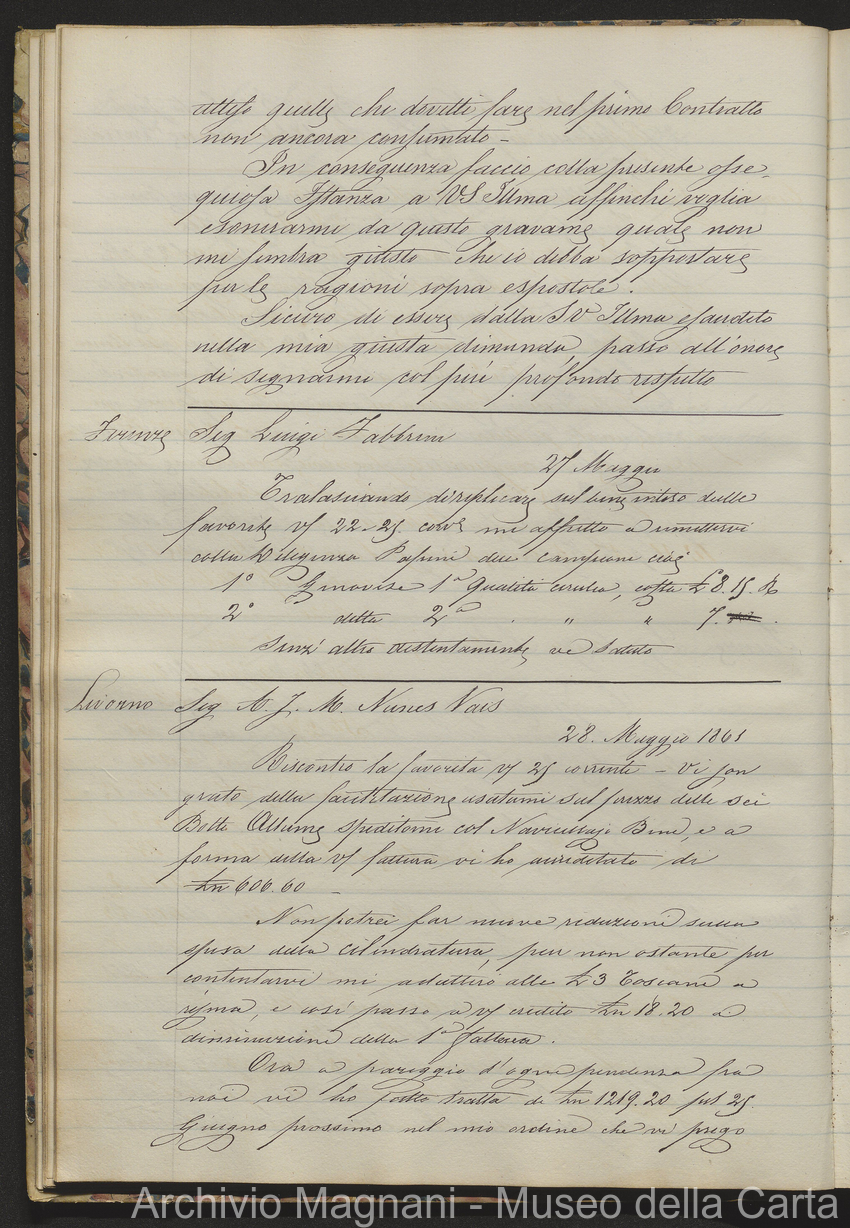 atteso quelle che dovetti fare nel primo Contratto
non ancora consumato -
In conseguenza faccio colla presente osse-
quiosa Istanza a VS Illma affinché voglia
esonerarmi da questo gravame quale non
mi sembra giusto che io debba sopportare
per le ragioni sopra espostole.
Sicuro di essere dalla SV Illma esaudito
nella mia giusta dimanda, passo all'onore
di segnarmi col più profondo rispetto
Firenze Sig Luigi Fabbrini
27 Maggio
Tralasciando di replicare sul bene inteso delle
favorite vs 22-25 corre mi affretto a rimettervi
colla Diligenza Papini due campione cioè
1° Genovese 1a Qualità cerulea, costa £ 8.15. R
2° detta 2a " " 7.
Senz' altro distintamente vi saluto
Livorno Sig A. J. M. Nunes Vais
28. Maggio 1861
Riscontro la favorita vs 25 corrente - Vi son
grato della facilitazione usatami sul prezzo delle sei
Botti Allume speditomi col Navicellajo Bini, e a
forma della vs fattura vi ho accreditato di
Ln 606.60 -
Non potrei far nuove riduzioni sulla
spesa della cilindratura, pur non ostante per
contentarvi mi adatterò alle £ 3 Toscane a
risma, e così passo a vs credito Ln 18.20 a
diminuzione della 1a fattura.
Ora a pareggio d'ogni pendenza fra
noi vi ho fatto tratta di Ln 1219.20 pel 25
Giugno prossimo nel mio ordine che vi prego
Archivio Magnani - Museo della Carta